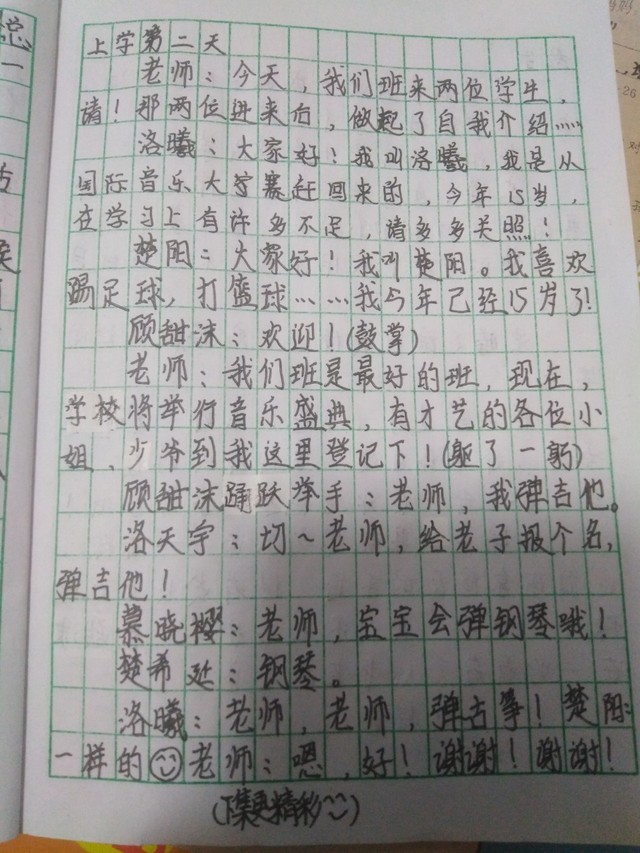 上学第二天
老师：今天，我们班来两位学生，
请！那两位进来后，做起了自我介绍……
洛曦：大家好！我叫洛曦，我是从
国际音乐大家赛赶回来的，今年15岁，
在学习上有许多不足，请多多关照！
楚阳：大家好！我叫楚阳。我喜欢
踢足球，打篮球……我今年已经15岁了！
顾甜沫：欢迎！(鼓掌)
老师：我们班是最好的班，现在，
学校将举行音乐盛典，有才艺的各位小
姐、少爷到我这里登记下！(躯了一躬)
顾甜沫踊跃举手：老师，我弹吉他。
洛天宇：切～老师，给老子报个名，
弹吉他！
慕晓樱：老师，宝宝会弹钢琴哦！
楚希延：钢琴。
洛曦：老师，老师，弹古筝！楚阳：
一样的☺老师：嗯，好！谢谢！谢谢！
(下集更精彩)